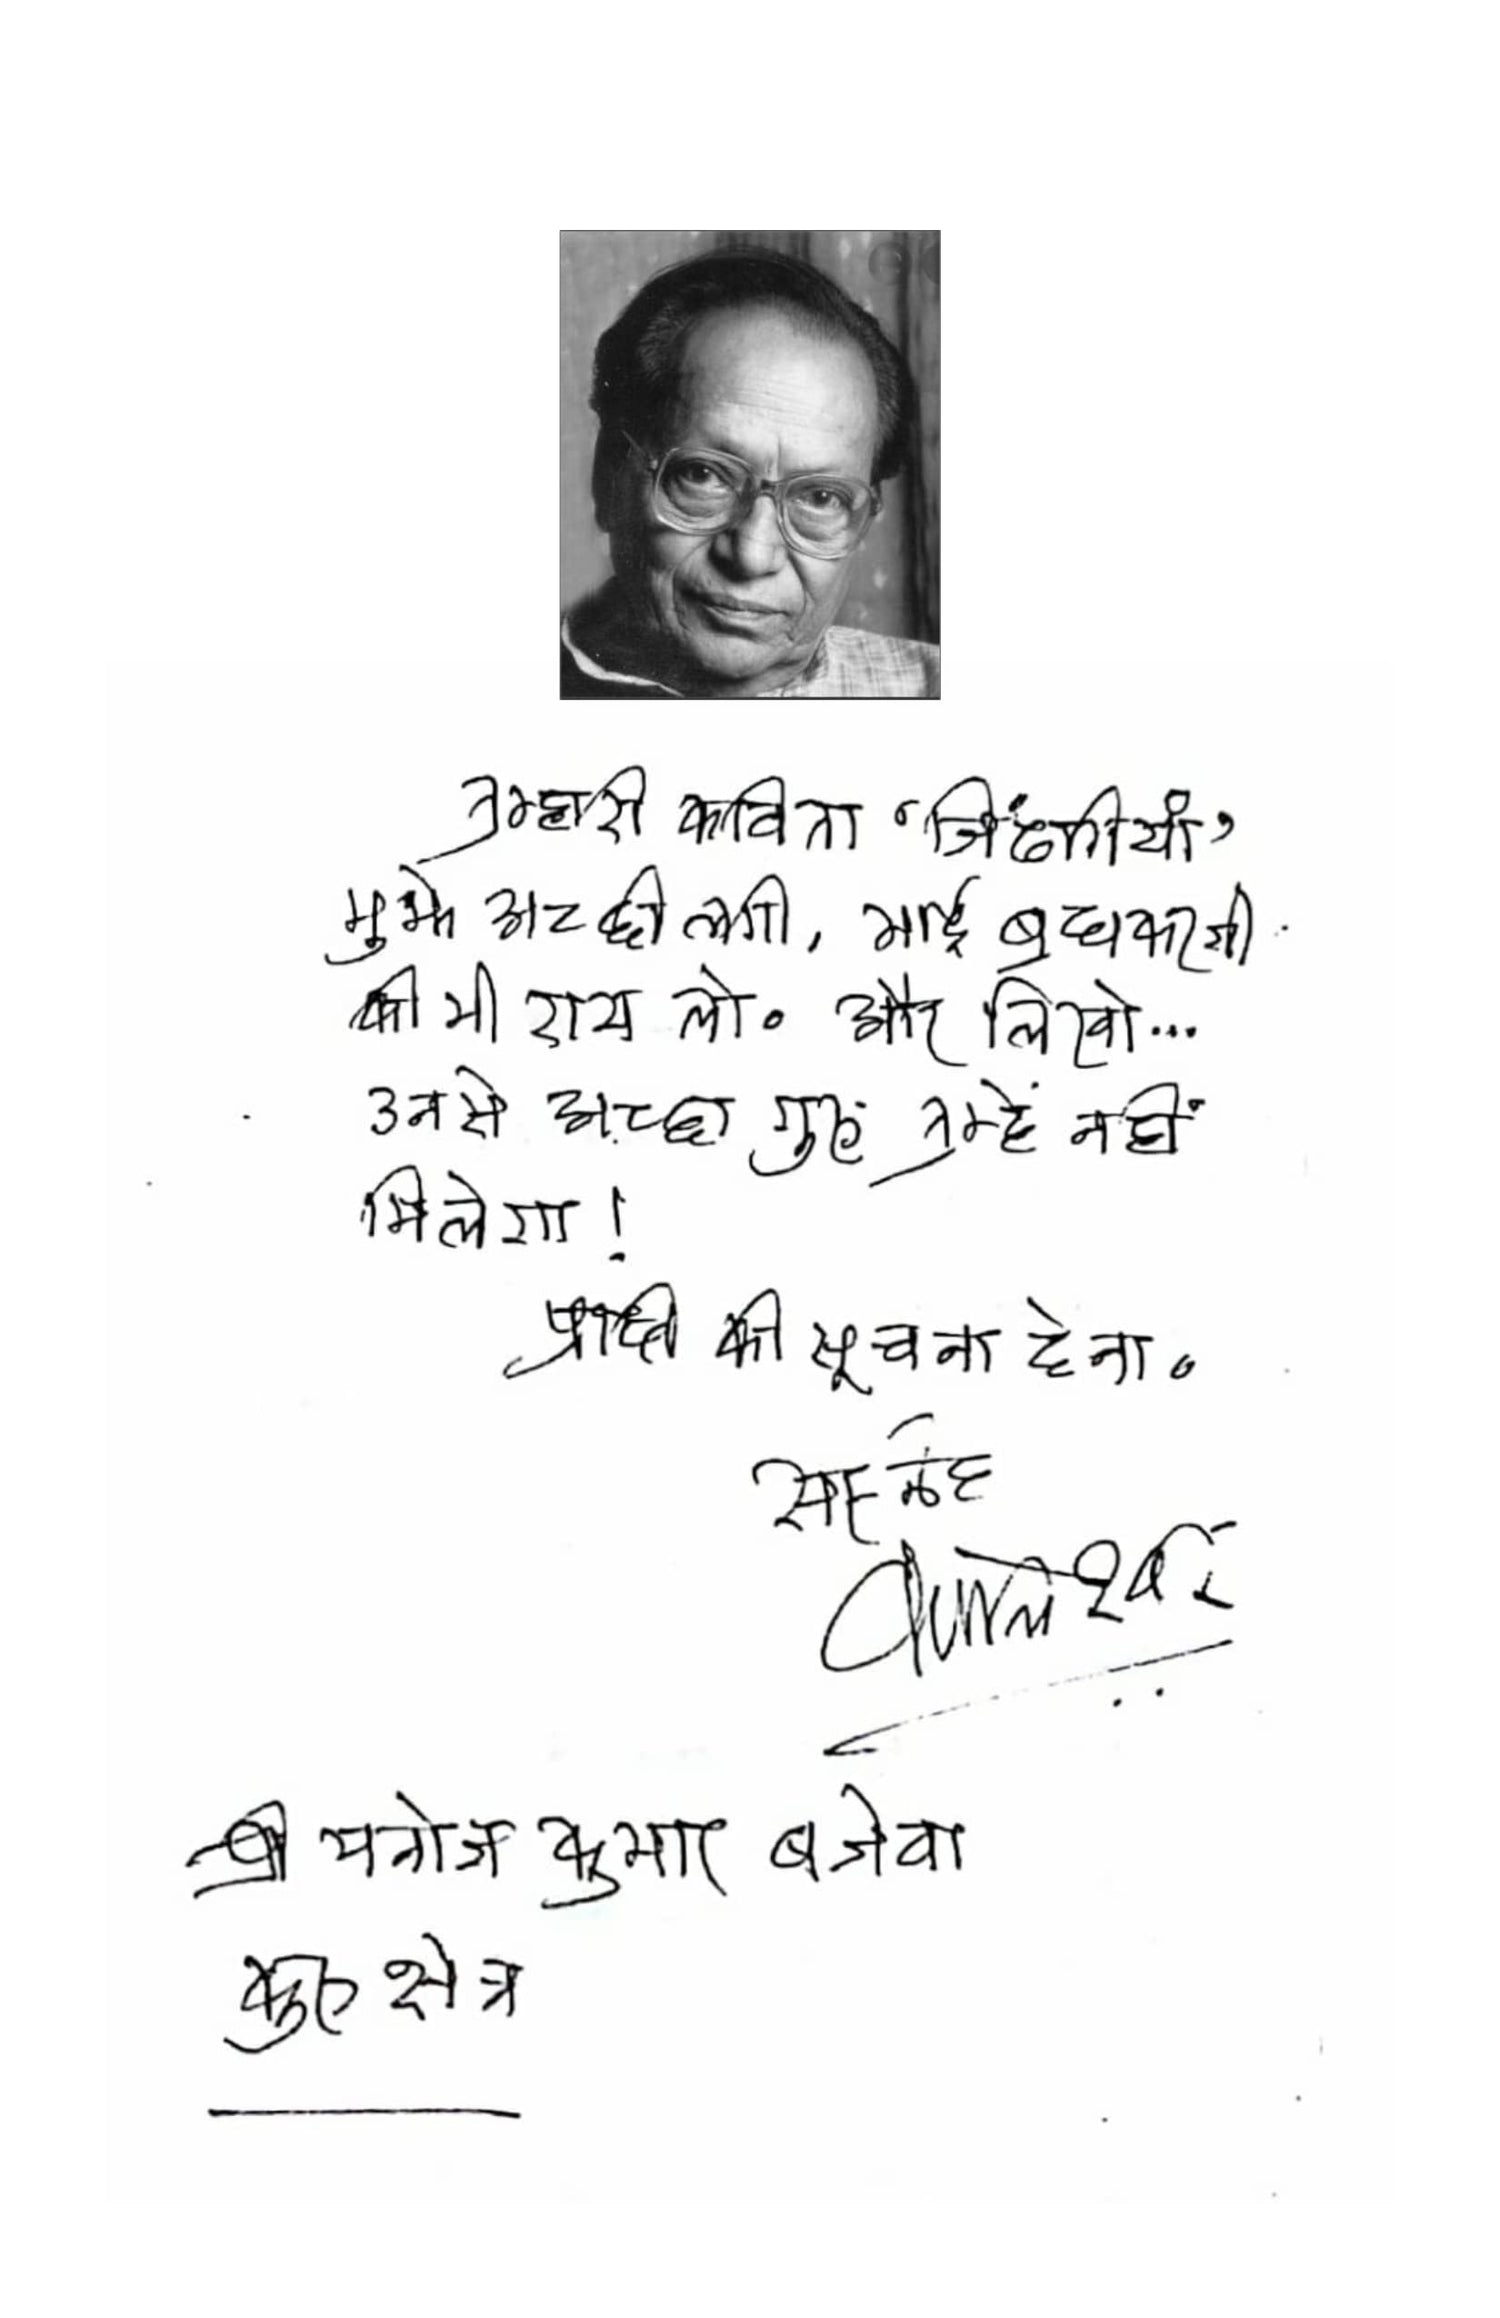 तुम्हारी कविता ‘जिंदगीयाँ’
मुझे अच्छी लगी, भाई ब्रह्मकारजी
की भी राय लो。 और लिखो...
उनसे अच्छा गुरु तुम्हें नहीं
मिलेगा!
प्राप्ति की सूचना देना。
सस्नेह
कमलेश्वर
श्री मनोज कुमार बजेवा
कुरुक्षेत्र